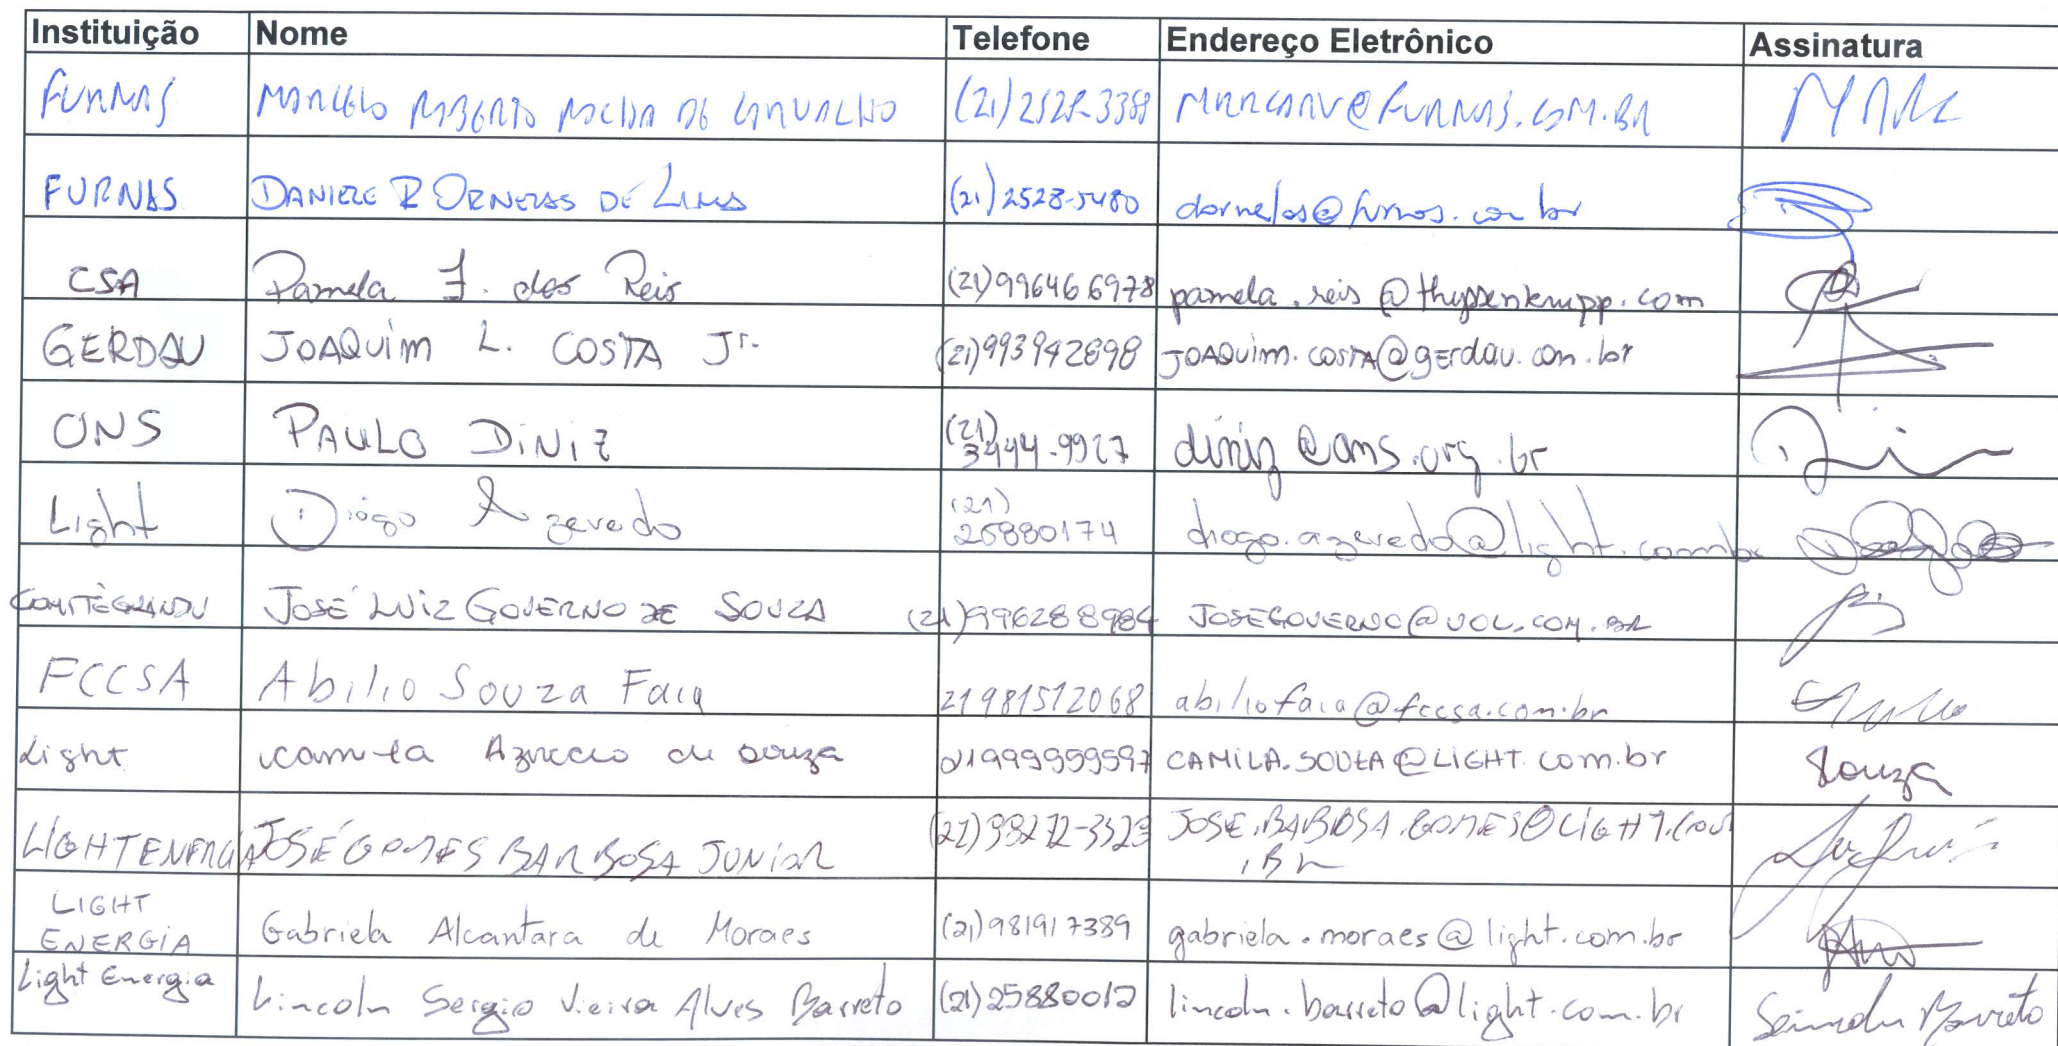 Instituição Nome Telefone Endereço Eletrônico Assinatura
FURNAS MARCELO ROBERTO ROCHA DE CARVALHO (21) 2528-3388 MARCARV@FURNAS.COM.BR
FURNAS DANIELE R ORNELAS DE LIMA (21) 2528-5480 dornelas@furnas.com br
CSA Pamela F. dos Reis (21) 99646 6978 pamela.reis@thyssenkrupp.com
GERDAU JOAQUIM L. COSTA Jr. (21) 993942898 JOAQUIM.COSTA@gerdau.com.br
ONS PAULO DINIZ (21) 3444-9927 diniz@ons.org.br
Light Diogo Azevedo (21) 25880174 diogo.azevedo@light.com.br
COMITÊ GUANDU JOSÉ LUIZ GOVERNO DE SOUZA (21) 996288984 JOSEGOVERNO@UOL.COM.BR
FCCSA Abilio Souza Faia 21 981512068 abiliofaia@fccsa.com.br
Light Camila de Souza 21999959597 CAMILA.SOUZA@LIGHT.com.br Souza
LIGHTENERGIA JOSÉ GOMES BARBOSA JUNIOR (21) 99212-3323 JOSE.BARBOSA.GOMES@LIGHT.COM
.BR
LIGHT
ENERGIA Gabriela Alcantara de Moraes (21) 981917389 gabriela.moraes@light.com.br
Light Energia Lincoln Sergio Vieira Alves Barreto (21) 25880012 lincoln.barreto@light.com.br Lincoln Barreto